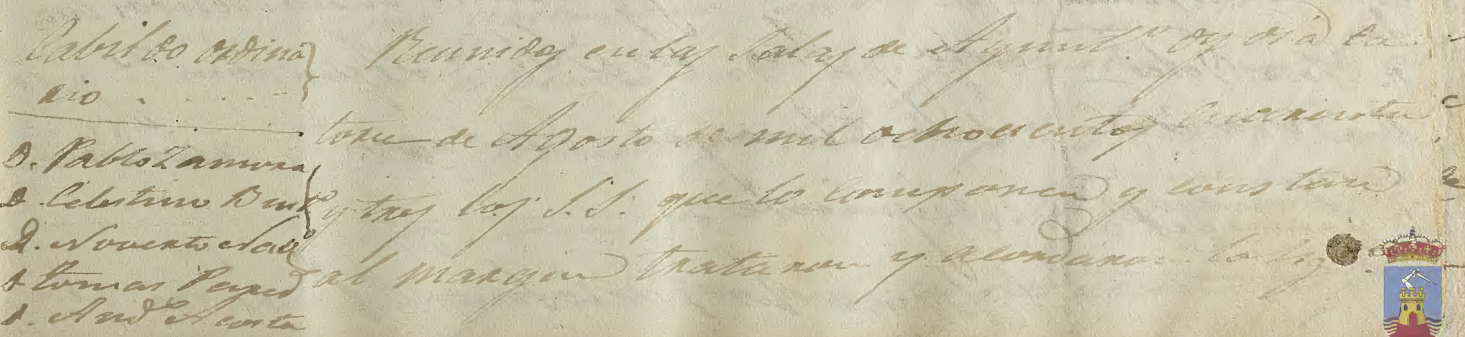 Cabildo ordina
rio
D. Pablo Zamora
D. Celestino
D. Noverto
D. Tomas
D. And.s Acosta
Reunidos en las Salas de Ayunt.o oy dia ca
torce de Agosto de mil ochocientos cuarenta
y tres los S.S. que lo componen y constan
al margen trataron y acordaron lo sig